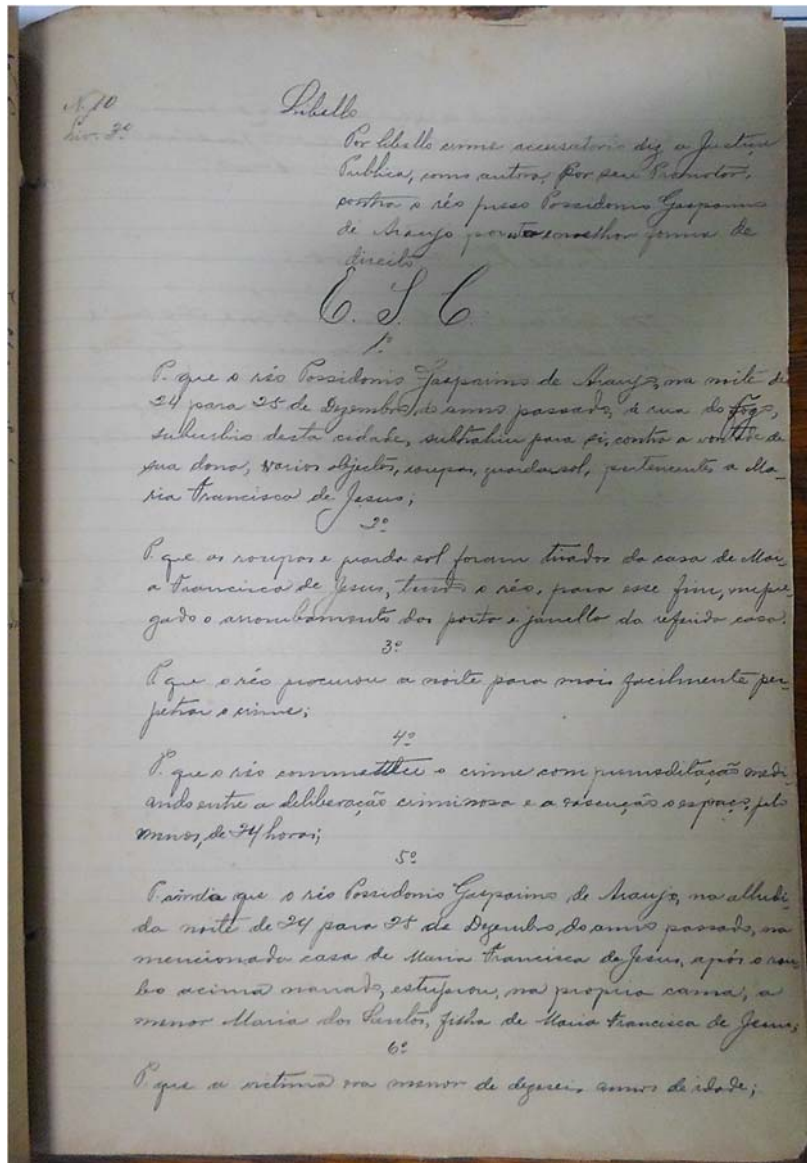 N. 10
Liv. 3º
Libello
Por libello crime accusatorio diz a Justiça
Publica, como autora, por seu Promotor,
contra o réo preso Possidonio Gasparino
de Araujo por esta e melhor forma de
direito
E. S. C.
1º
P. que o réo Possidonio Gasparino de Araujo, na noite de
24 para 25 de Dezembro, do anno passado, á rua do Fogo,
suburbio desta cidade, subtrahiu para si, contra a vontade de
sua dona, varios objectos, roupas, guarda sol, pertencentes a Ma-
ria Francisca de Jesus;
2º
P. que as roupas e guarda sol foram tirados da casa de Mari-
a Francisca de Jesus, tendo o réo, para esse fim, empre-
gado o arrombamento das porta e janella da referida casa.
3º
P. que o réo procurou a noite para mais facilmente per-
petrar o crime;
4º
P. que o réo commetteu o crime com premeditação medi-
ando entre a deliberação criminosa e a execução o espaço, pelo
menos, de 24 horas;
5º
P. ainda que o réo Possidonio Gasparino de Araujo, na alludi-
da noite de 24 para 25 de Dezembro, do anno passado, na
mencionada casa de Maria Francisca de Jesus, após o rou-
bo acima narrado, estuprou, na propria cama, a
menor Maria dos Santos, filha de Maria Francisca de Jesus;
6º
P. que a victima era menor de dezeseis annos de idade;